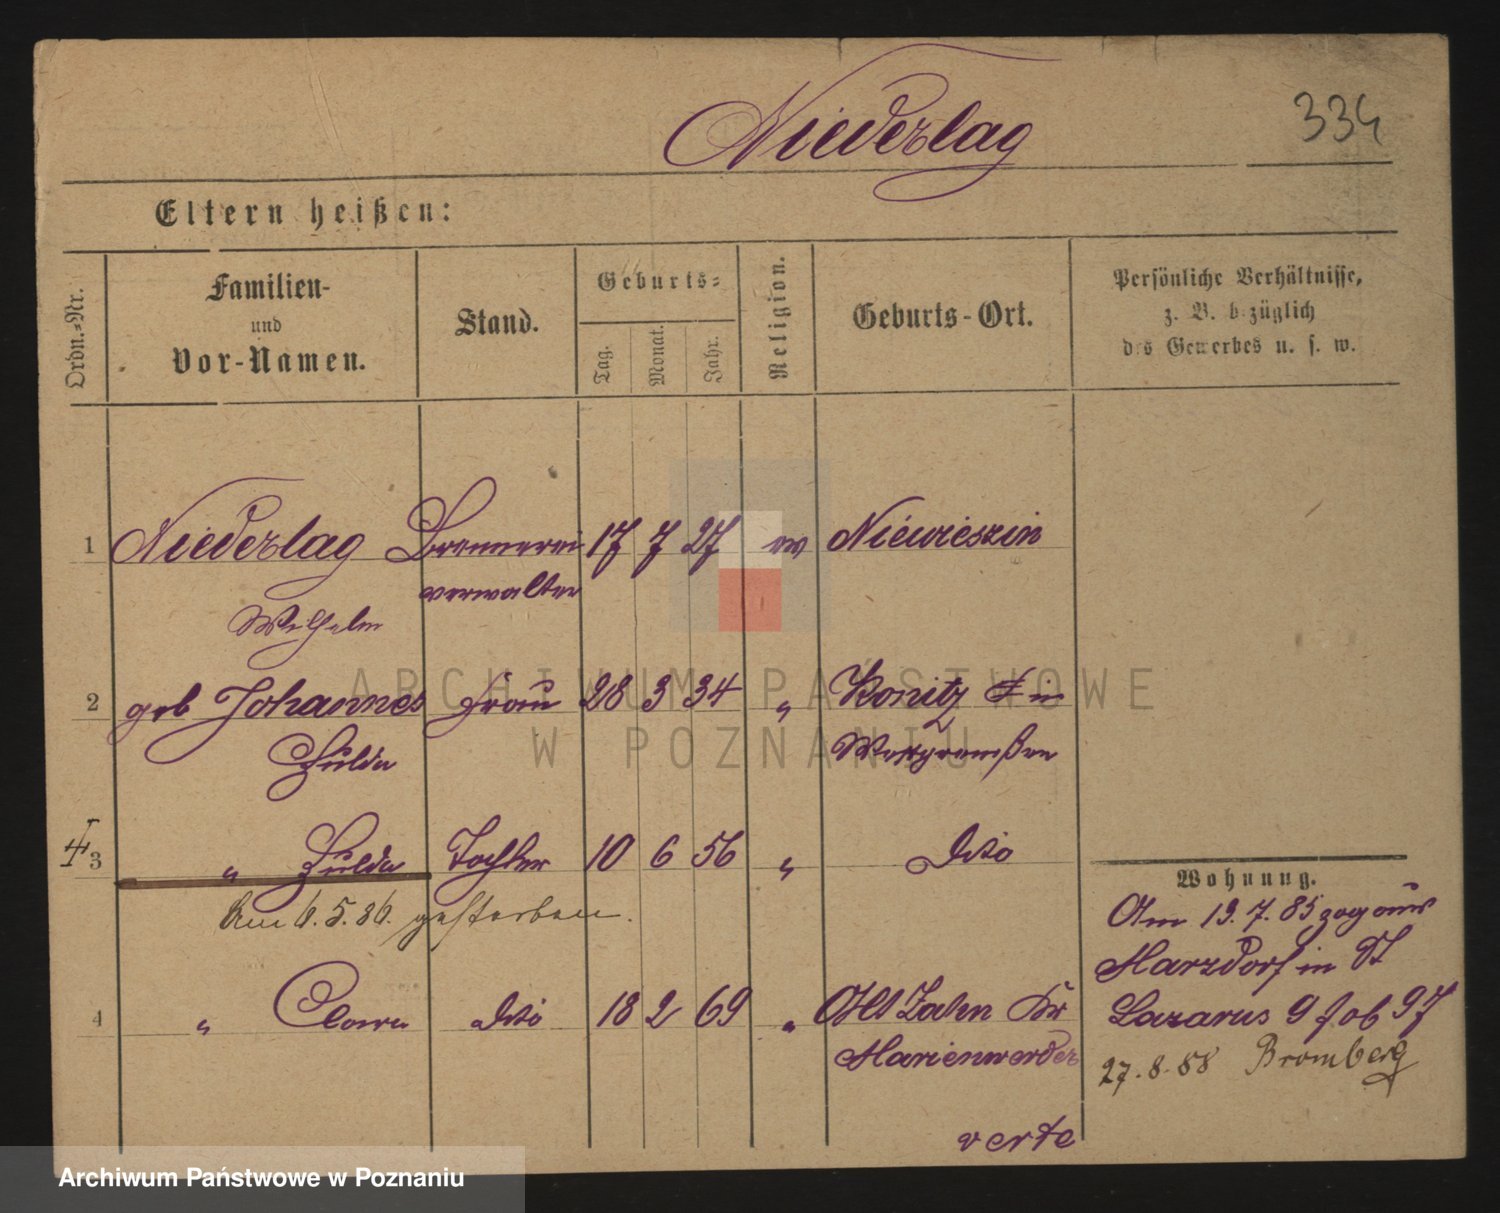 Niederlag
334
Eltern heißen:
Ordn.-Nr.
Familien-
und
Vor-Namen.
Stand.
Geburts-
Tag.
Monat.
Jahr.
Religion.
Geburts-Ort.
Persönliche Verhältnisse,
z. B. bezüglich
des Gewerbes u. s. w.
1 Niederlag Brennerei 17 7 27 ev Niewieszin
verwalter
Wilhelm
2 geb Johannes Frau 28 3 34 " Konitz in
Hulda Westpreußen
3 " Hulda Tochter 10 6 56 " dito
Am 6.5.86. gestorben.
4 " Clara dito 18 2 69 " Alt Jahn Kr
Marienwerder
verte
Wohnung.
Am 19.7.85 zog aus
Marzdorf in St
Lazarus 9 f ob 97
27.8.88 Bromberg
ARCHIWUM PAŃSTWOWE
W POZNANIU
Archiwum Państwowe w Poznaniu